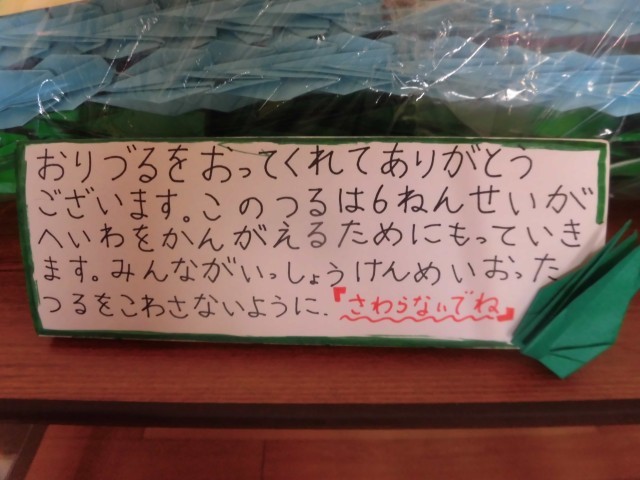 おりづるをおってくれてありがとう
ございます。このつるは6ねんせいが
へいわをかんがえるためにもっていき
ます。みんながいっしょうけんめいおった
つるをこわさないように、『さわらないでね』